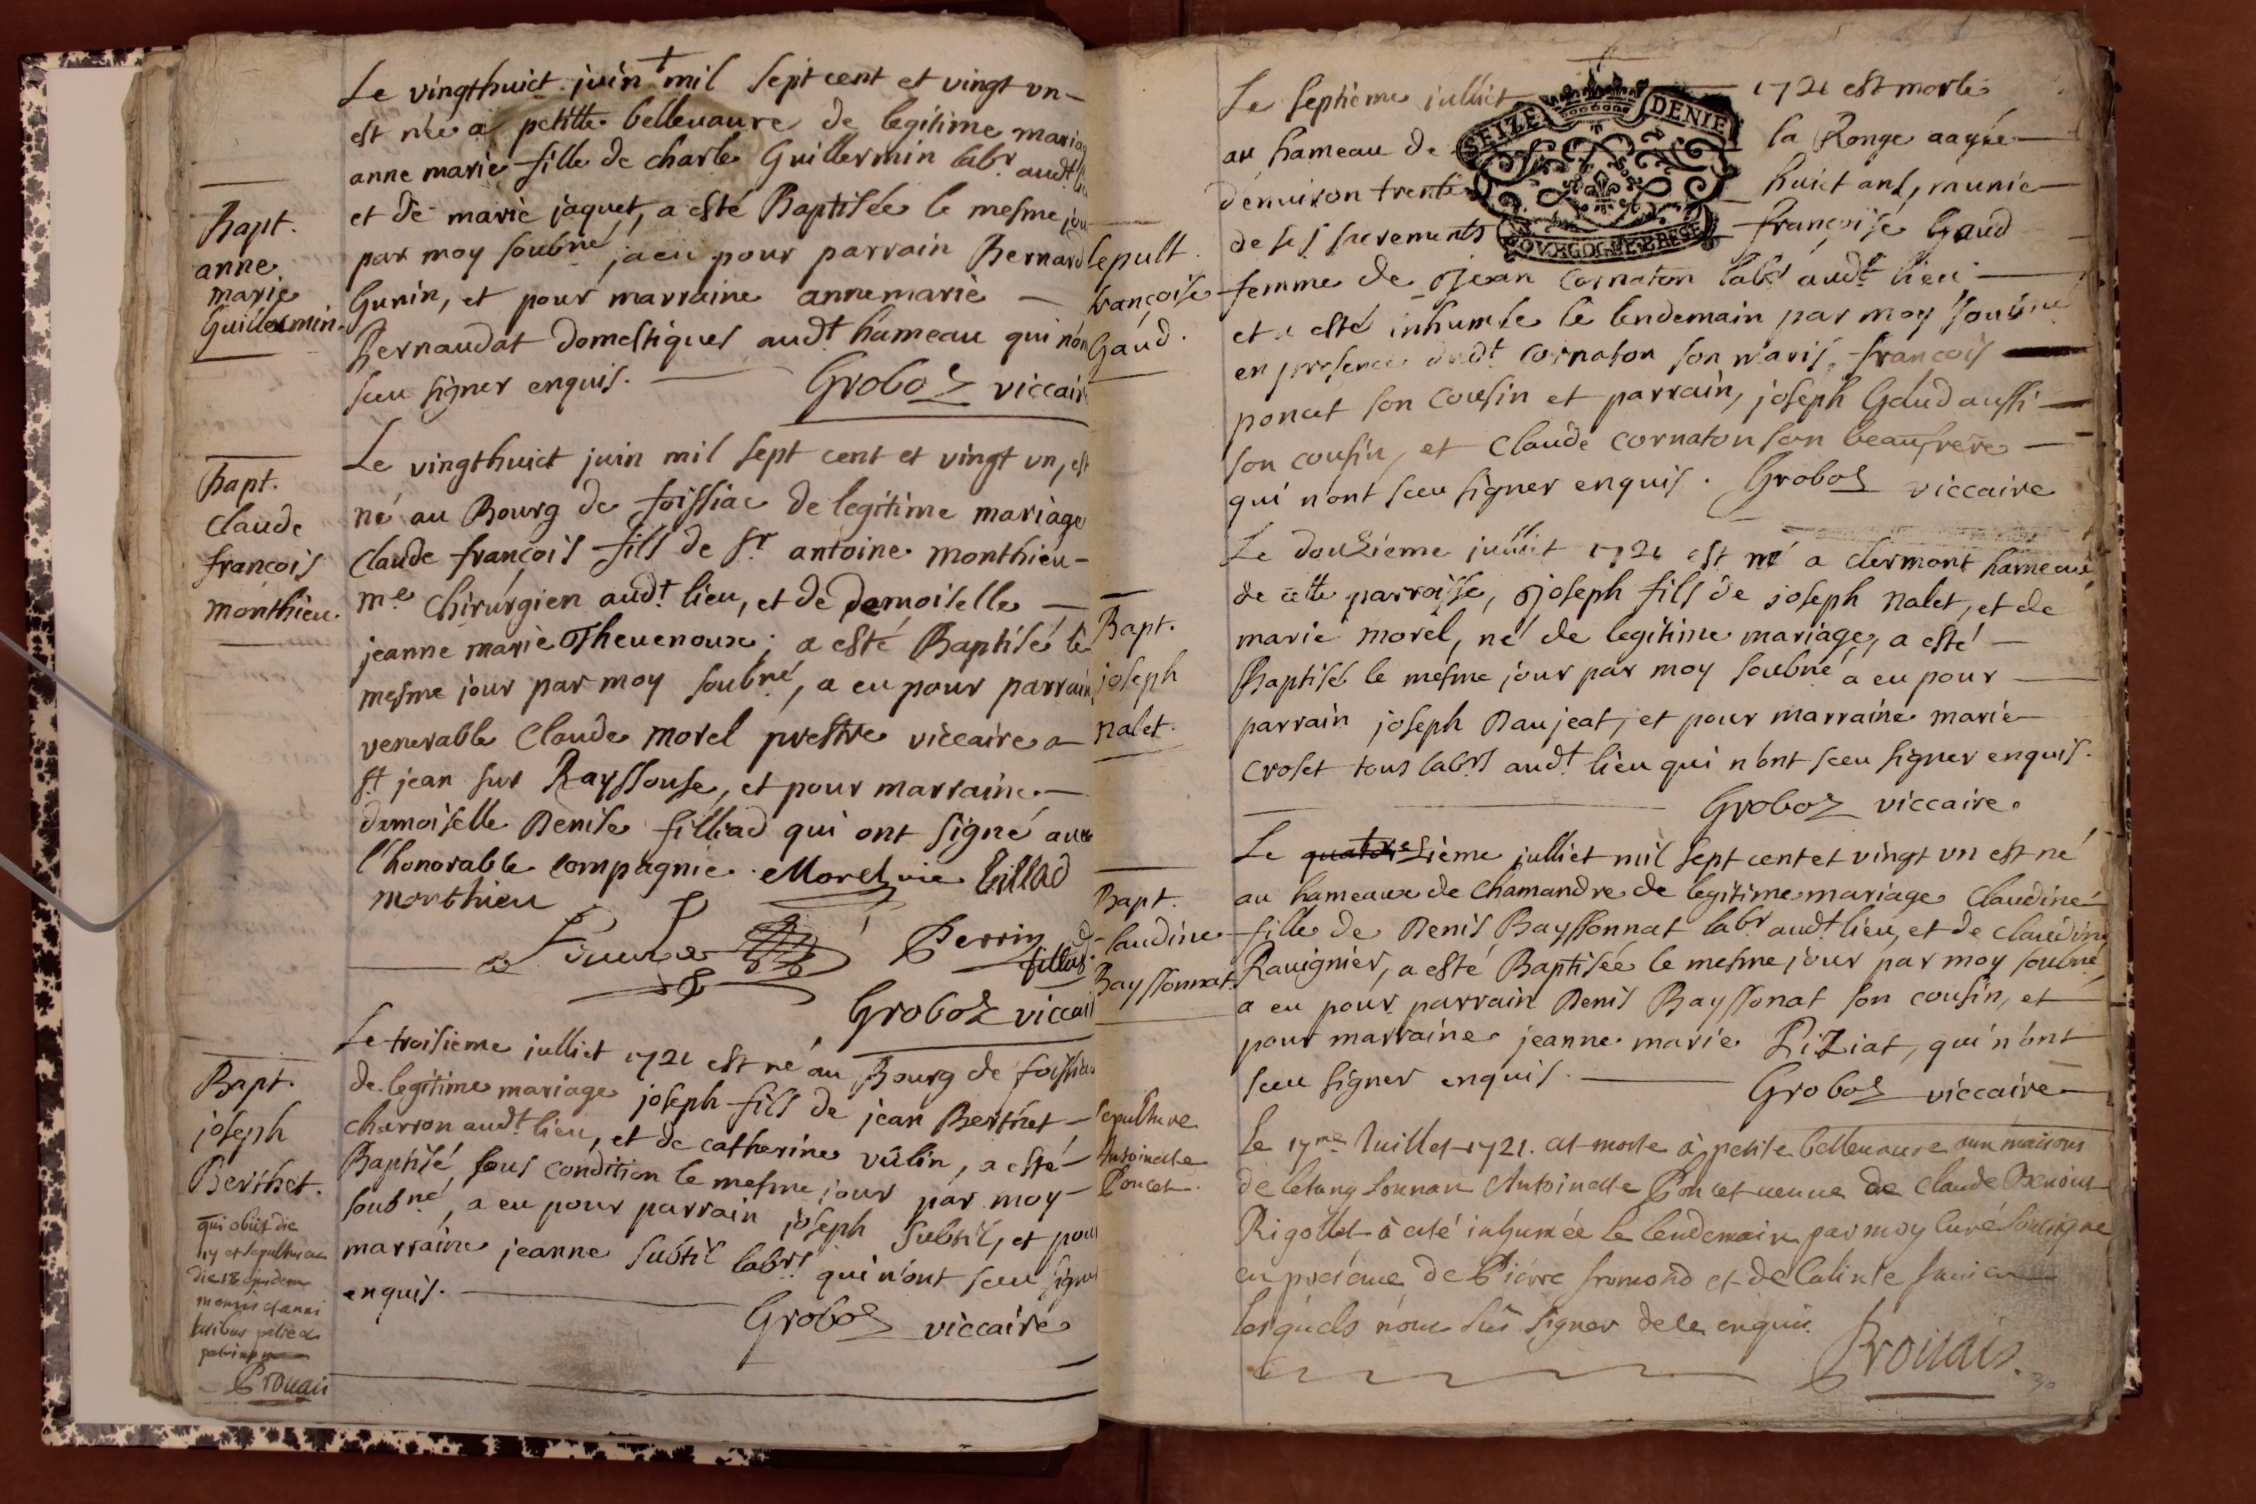 Le vingthuict juin mil sept cent et vingt vn
est née a petitte belleuaure de legitime mariag
anne marie fille de charle Guillermin labr. audt.
et de marie jaquet, a esté Baptisée le mesme jou
par moy soubné, a eu pour parrain Bernard
Gunin, et pour marraine anne marie
Bernaudat domestiques audt hameau qui nón
sceu signer enquis. Groboz viccair
Bapt.
anne
marie
Guillermin.
Le vingthuict juin mil sept cent et vingt vn, est
né au Bourg de foissiac de legitime mariage
Claude françois fils de sr. antoine monthieu
me Chirurgien audt. lieu, et de demoiselle
jeanne marie Theuenoux, a esté Baptisé le
mesme jour par moy soubné, a eu pour parrain
venerable Claude morel prestre viccaire a
st jean sur Rayssouse, et pour marraine
damoiselle Denise filliad qui ont signé auec
l'honorable compagnie. Morel vic fillad
monthieu
Perrin
Groboz viccair
Bapt.
Claude
françois
monthieu.
Le troisieme julliet 1721 est né au Bourg de foissia
de legitime mariage joseph fils de jean Berthet
charron audt. lieu, et de catherine vûlin, a esté
Baptisé, sous condition le mesme jour par moy
soubné, a eu pour parrain joseph subtil, et pour
marraine jeanne subtil labrs qui n'ont sceu signer
enquis. Groboz viccaire
Bapt.
joseph
Berthet.
qui obiit die
17 et sepultus
die 18 ejusdem
Prouais
Le septieme julliet 1721 est morte
au hameau de la Ronge aagée
d'enuiron trente huict ans, munie
de ses sacrements françoise Gaud
femme de jean Cornaton labr audt. lieu
et a esté inhumée le lendemain par moy soubné
en presence dudt. Cornaton son maris, françois
poncet son cousin et parrain, joseph Gaud aussi
son cousin, et Claude cornaton son beaufrere
qui n'ont sceu signer enquis. Groboz viccaire
SEIZE DENIE
BOVRGOGNE BRESSE
sepult.
francoise
Gaud.
Le douzieme julliet 1721 est né a clermont hameau
de cette parroisse, joseph fils de joseph nalet, et de
marie morel, né de legitime mariage, a esté
Baptisé le mesme jour par moy soubné a eu pour
parrain joseph Daujeat, et pour marraine marie
croset tous labrs audt. lieu qui n'ont sceu signer enquis.
Groboz viccaire.
Bapt.
joseph
nalet.
Le quatorsieme julliet mil sept cent et vingt vn est né
au hameaux de Chamandre de legitime mariage Claudine
fille de Denis Bayssonnat labr audt. lieu, et de claudine
Rauignier, a esté Baptisée le mesme jour par moy soubné
a eu pour parrain Denis Bayssonat son cousin, et
pour marraine jeanne marie Piziat, qui n'ont
sceu signer enquis. Groboz viccaire
Bapt.
claudine
Bayssonnat.
Le 17me Juillet 1721. est morte à petite belleuaure aux maisons
de letang Antoinette Poncet ueuue de Claude Benoist
Rigollet à eté inhumée le lendemain par moy curé soussigne
en presence de Pierre fromond et de
lesquels n'ont sus signer de ce enquis.
Prouais.
sepulture
Antoinette
Poncet.